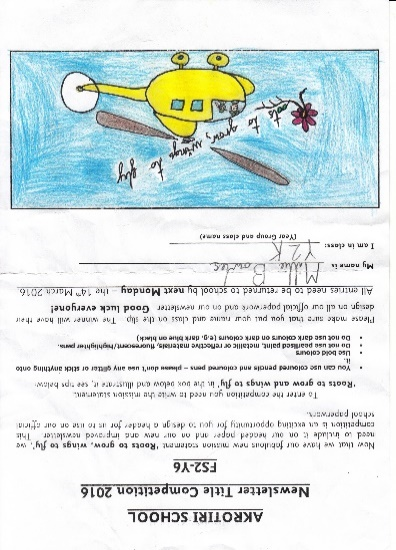 AKROTIRI SCHOOL
Newsletter Title Competition 2016
FS2-Y6
Now that we have our fabulous new mission statement 'Roots to grow, wings to fly', we
need to include it on our headed paper and on our new and improved newsletter. This
competition is an exciting opportunity for you to design a header for us to use on our official
school paperwork.
To enter the competition you need to write the mission statement
'Roots to grow and wings to fly', in the box below and illustrate it, see tips below:
• You can use coloured pencils and coloured pens – please don't use any glitter or stick anything onto
it.
• Use bold colours
• Do not use pearlised paint, metallic or reflective materials, fluorescent/highlighter pens.
• Do not use dark colours on dark colours (e.g. dark blue on black)
Please make sure that you put your name and class on the slip. The winner will have their
design on all our official paperwork and on our newsletter. Good luck everyone!
All entries need to be returned to school by next Monday – the 14th March 2016.
My name is Millie Bowles
I am in class: Y2K
(Year Group and class name)
roots to grow, wings to fly